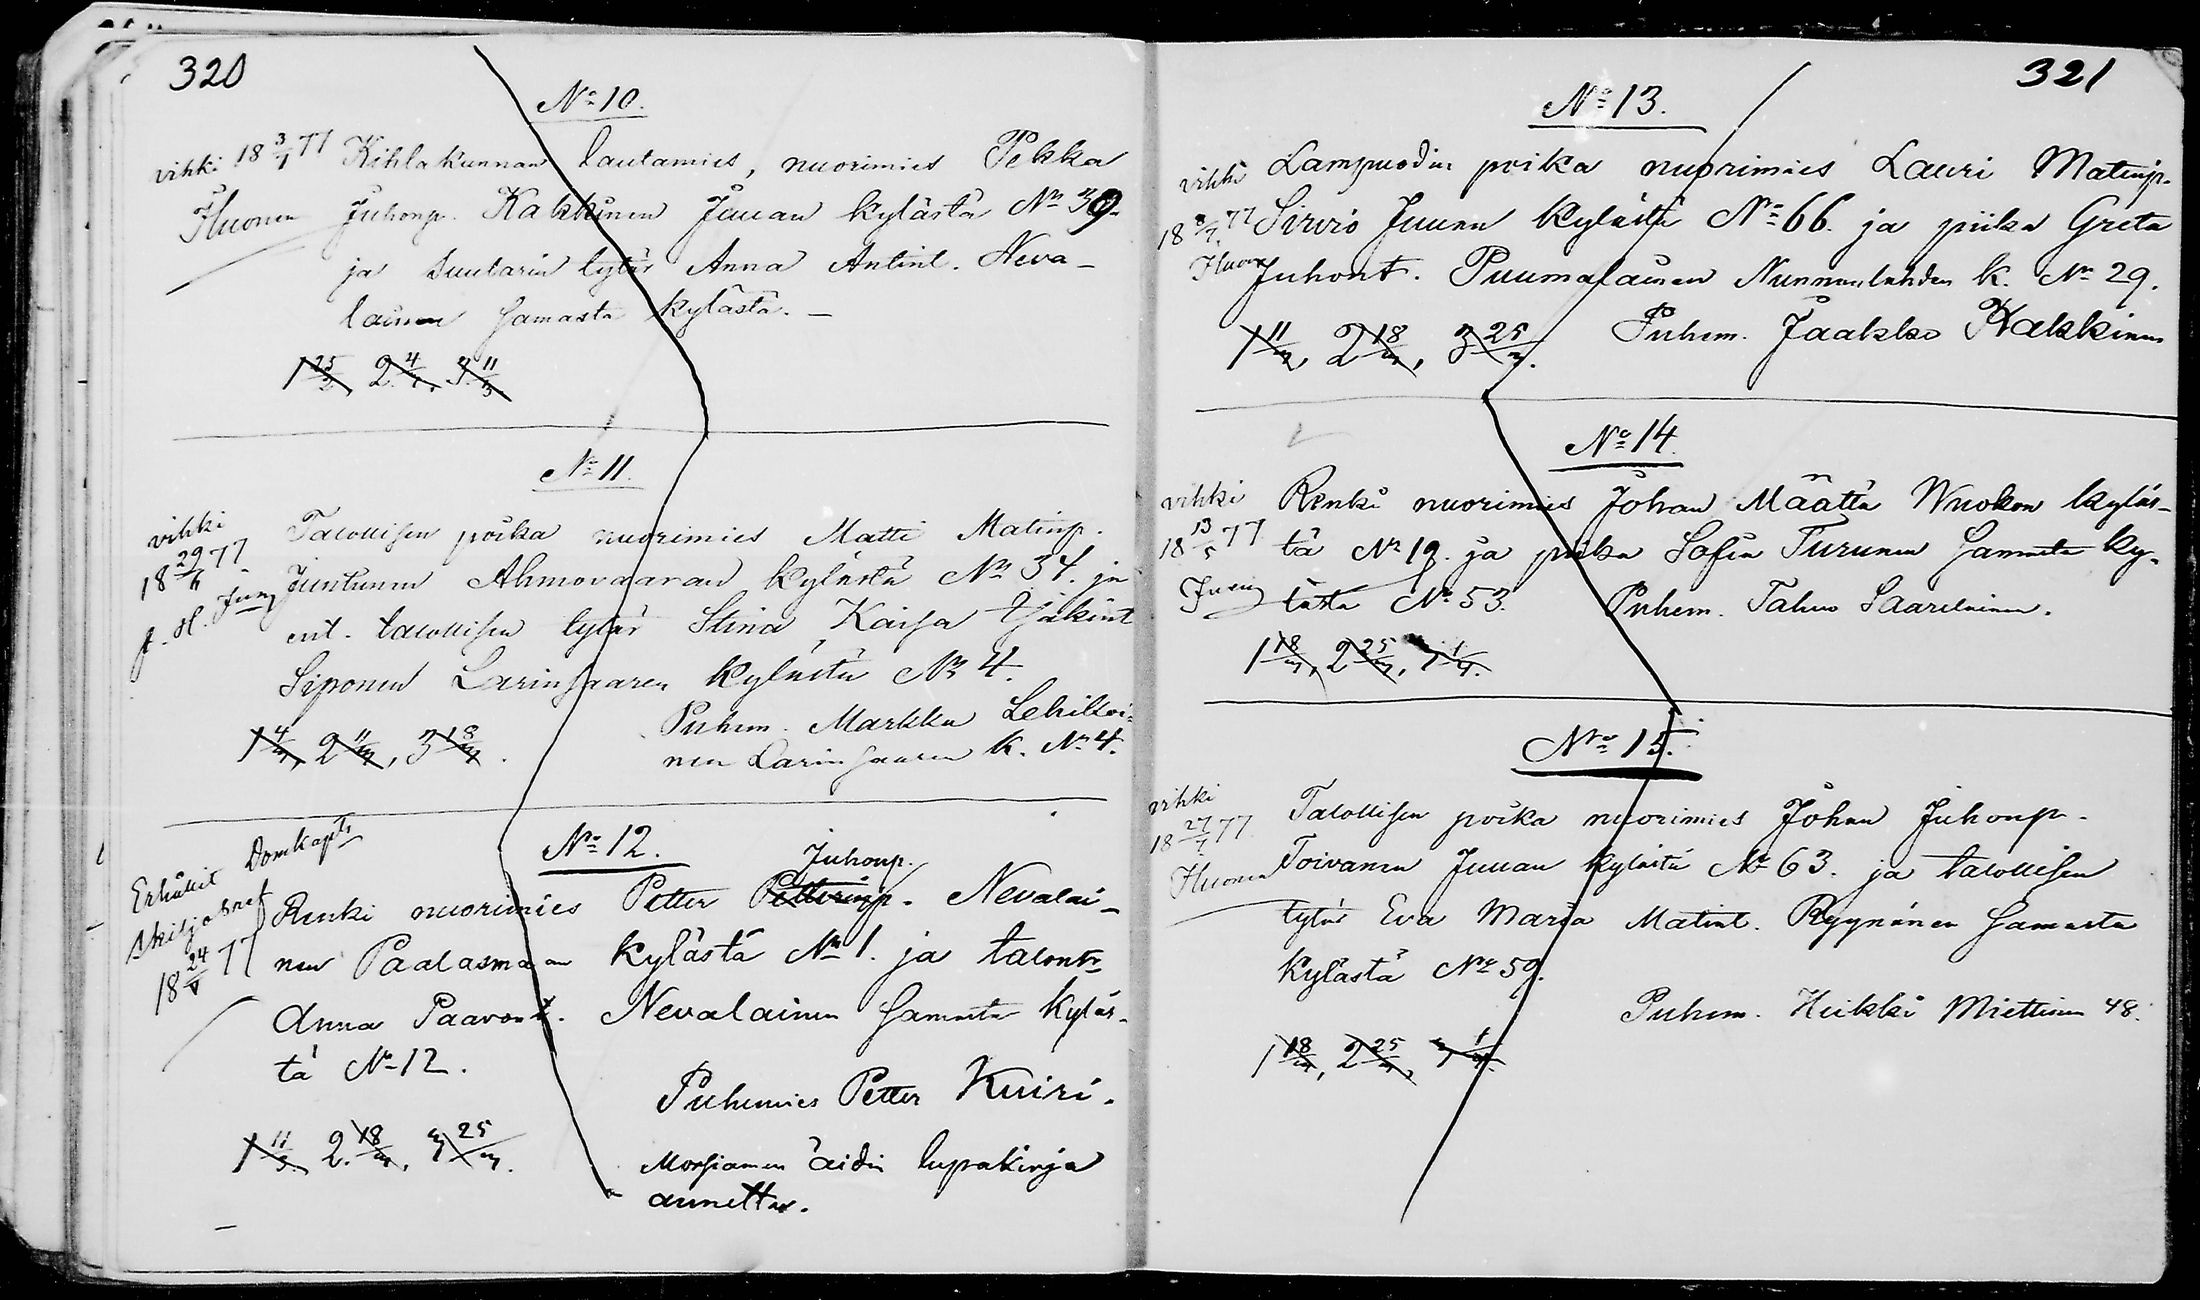 320
No 10.
vihki 18 3/7 77 Kihlakunnan lautamies, nuorimies Pekka
Ihonen Juhonp. Kakkinen Juuan kylästä No 39.
ja Suutarin tytär Anna Antint. Neva-
lainen samasta kylästä.
1 25/2, 2. 4/3, 3. 11/3
No 11.
vihki
18 29/6 77.
Talollisen poika nuorimies Matti Matinp.
Juntunen Ahmovaaran kylästä No 34. ja
ent. talollisen tytär Stina Kaisa
Siponen Larinsaaren kylästä No 4.
Puhem. Markku Lehikoi-
nen Larinsaaren k. No 4.
1 4/3, 2 11/3, 3 18/3.
Domkapts
No 12.
Juhonp.
Erhållit
Skiljobref
18 24/5 77
Renki nuorimies Petter Petterinp. Nevalai-
nen Paalasmaan kylästä No 1. ja talontr
Anna Paavont. Nevalainen Samasta kyläs-
tä No 12.
Puhemies Petter Kuiri.
1 11/3. 2. 18/3, 3 25/3.
Morsiamen äidin lupakirja
annettu.
321
No 13.
vihki
Lampuodin poika nuorimies Lauri Matinp.
Sirviö Juuan kylästä No 66. ja piika Greta
Juhont. Puumalainen Nunnanlahden k. No 29.
Puhem. Jaakko Hakkinen
1 11/3, 2 18/3, 3 25/3.
No 14.
vihki
18 13/5 77
Renki nuorimies Johan Määttä Wuokon kyläs-
tä No 19. ja piika Sofia Turunen Samasta ky-
lästä No 53. Puhem. Tahvo Saarelainen.
1 18/3, 2 25/3, 3 1/4.
No 15.
vihki
18 27/7 77
Ihonen
Talollisen poika nuorimies Johan Juhonp.
Toivanen Juuan kylästä No 63. ja talollisen
tytär Eva Maria Matint. Ryynänen Samasta
kylästä No 59.
Puhem. Heikki Miettinen 48.
1 18/3, 2 25/3, 3 1/4.